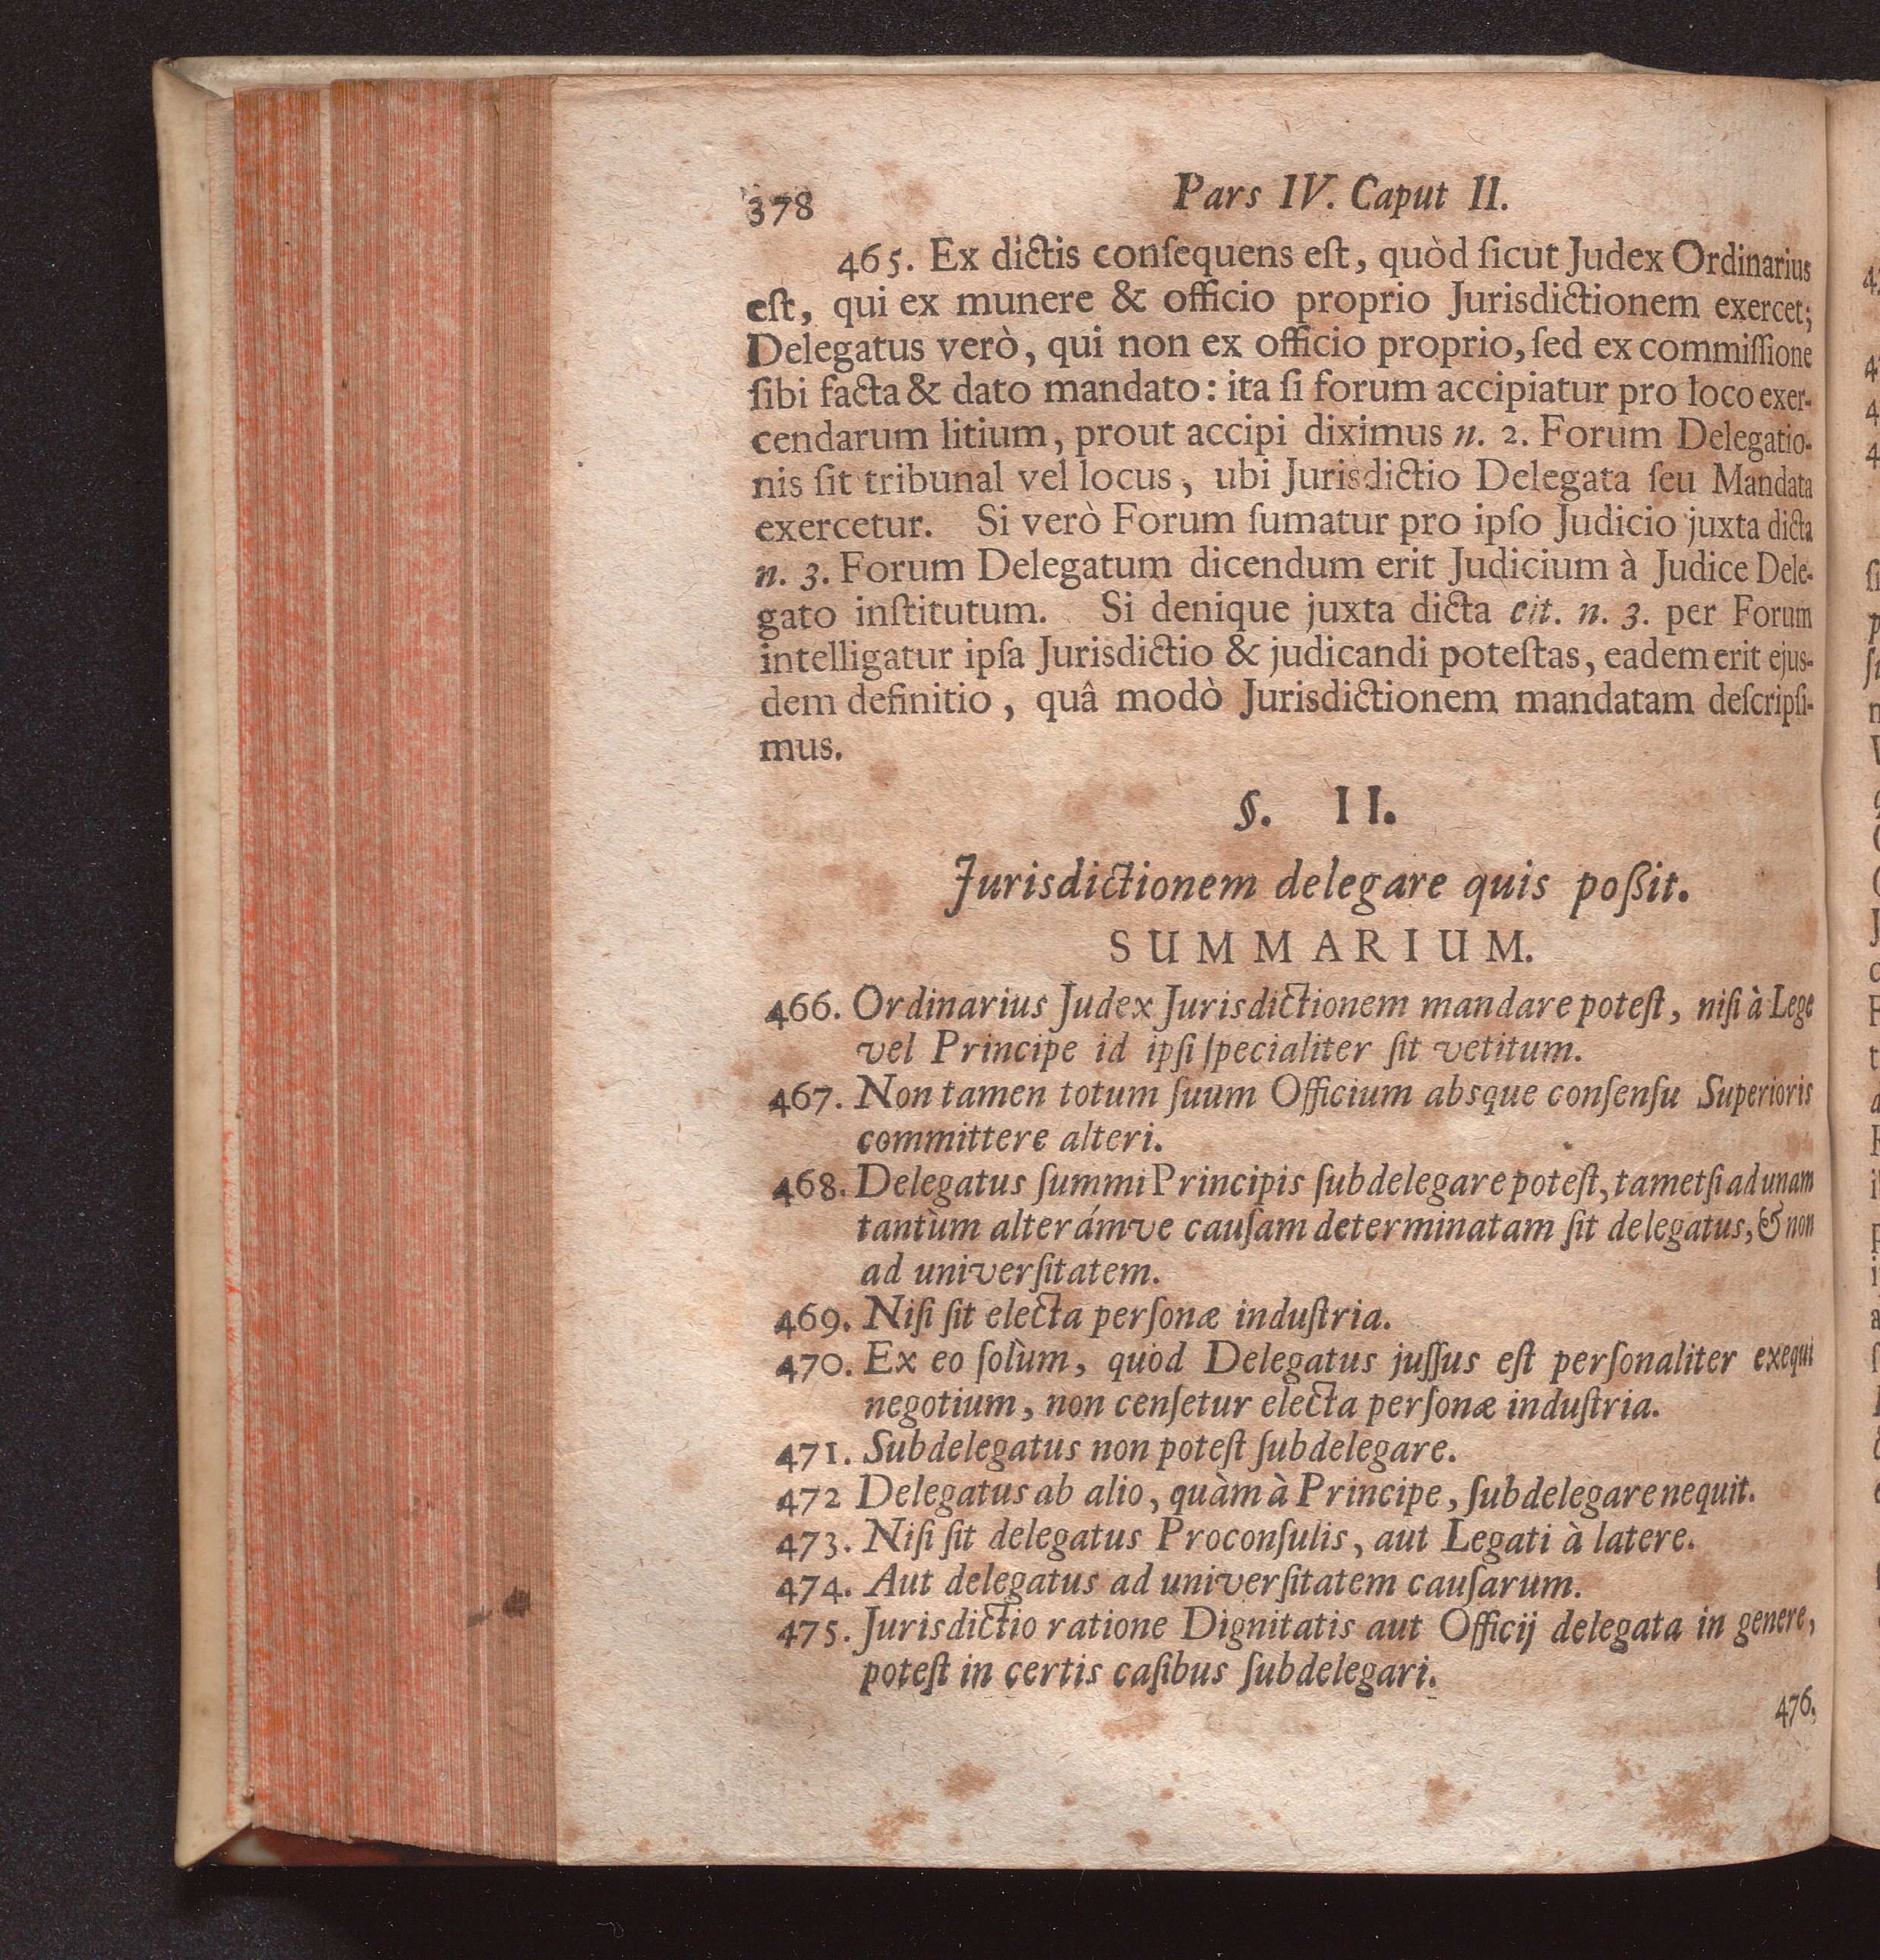 378
Pars IV. Caput II.
465. Ex dictis conſequens eſt, quòd ſicut Judex Ordinarius
eſt, qui ex munere & officio proprio Jurisdictionem exercet;
Delegatus verò, qui non ex officio proprio, ſed ex commiſſione
ſibi facta & dato mandato: ita ſi forum accipiatur pro loco exer-
cendarum litium, prout accipi diximus n. 2. Forum Delegatio-
nis ſit tribunal vel locus, ubi Jurisdictio Delegata ſeu Mandata
exercetur. Si verò Forum ſumatur pro ipſo Judicio juxta dicta
n. 3. Forum Delegatum dicendum erit Judicium à Judice Dele-
gato inſtitutum. Si denique juxta dicta cit. n. 3. per Forum
intelligatur ipſa Jurisdictio & judicandi poteſtas, eadem erit ejus-
dem definitio, quâ modò Jurisdictionem mandatam deſcripſi-
mus.
§. II.
Jurisdictionem delegare quis poßit.
SUMMARIUM.
466. Ordinarius Judex Jurisdictionem mandare poteſt, niſi à Lege
vel Principe id ipſi ſpecialiter ſit vetitum.
467. Non tamen totum ſuum Officium absque conſenſu Superioris
committere alteri.
468. Delegatus ſummi Principis ſubdelegare poteſt, tametſi ad unam
tantùm alterámve cauſam determinatam ſit delegatus, & non
ad univerſitatem.
469. Niſi ſit electa perſonæ induſtria.
470. Ex eo ſolùm, quòd Delegatus juſſus eſt perſonaliter exequi
negotium, non cenſetur electa perſonæ induſtria.
471. Subdelegatus non poteſt ſubdelegare.
472 Delegatus ab alio, quàm à Principe, ſubdelegare nequit.
473. Niſi ſit delegatus Proconſulis, aut Legati à latere.
474. Aut delegatus ad univerſitatem cauſarum.
475. Jurisdictio ratione Dignitatis aut Officij delegata in genere,
poteſt in certis caſibus ſubdelegari.
476,